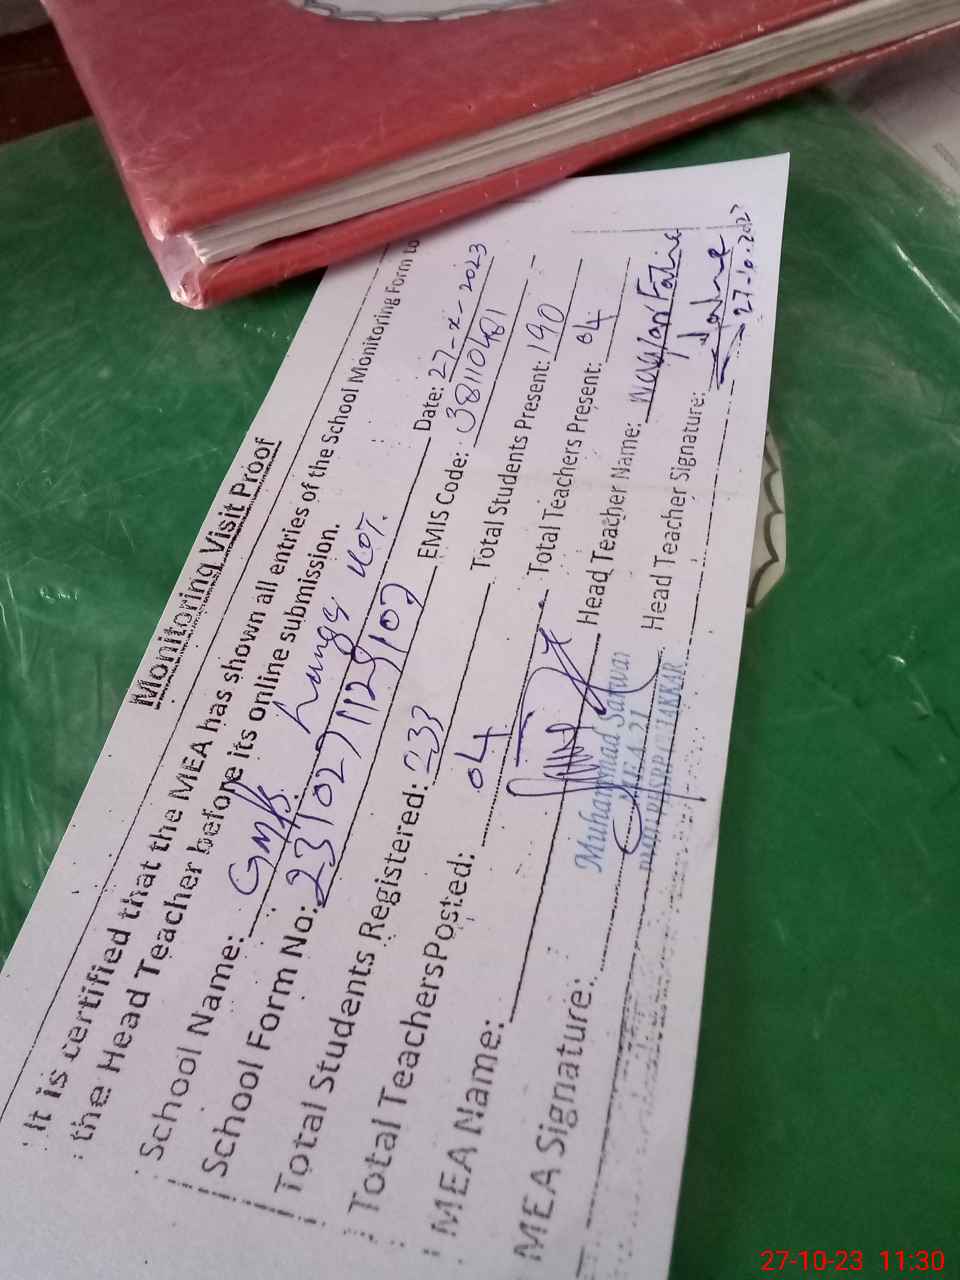 Monitoring Visit Proof
It is certified that the MEA has shown all entries of the School Monitoring Form to
the Head Teacher before its online submission.
School Name: GMPS Date: 27-X-2023
School Form No: 23102711129107 EMIS Code: 38110481
Total Students Registered: 233 Total Students Present: 190
Total TeachersPosted: 04 Total Teachers Present: 04
MEA Name: Head Teacher Name:
Muhammad Sarwar
MEA 21
MEA Signature: Head Teacher Signature:
27-10-2023
27-10-23 11:30